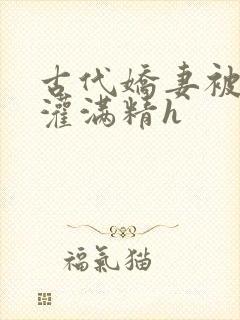 古代嬌妻被
灌滿精h
福氣猫